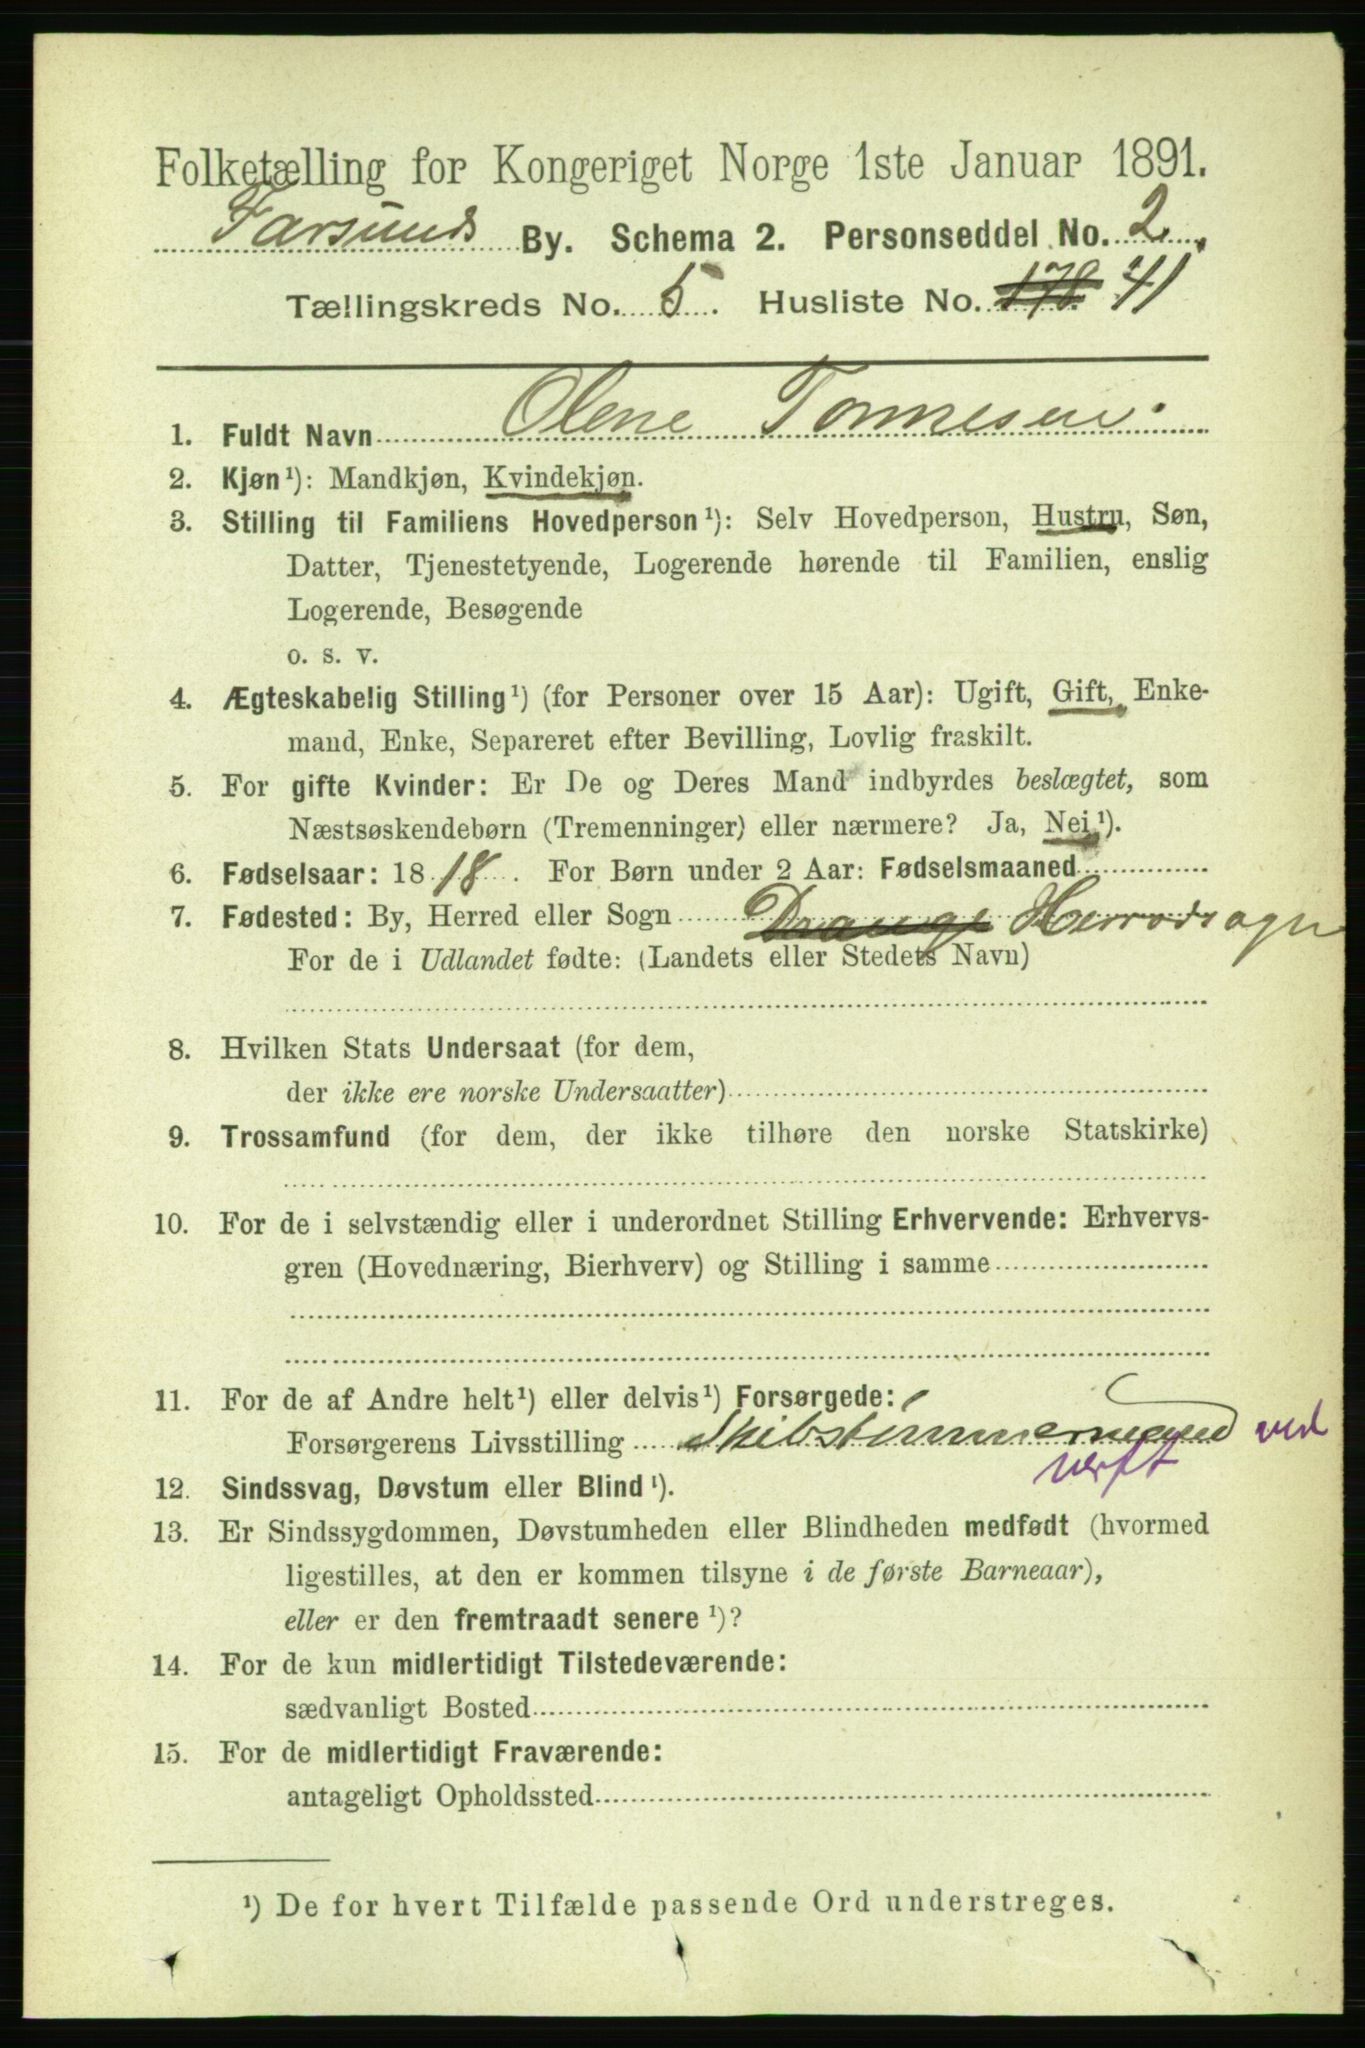 Folketælling for Kongeriget Norge 1ste Januar 1891.
Farsunds By. Schema 2. Personseddel No. 2.
Tællingskreds No. 5. Husliste No. 178 41
1. Fuldt Navn Olene Tønnesen.
2. Kjøn¹): Mandkjøn, Kvindekjøn.
3. Stilling til Familiens Hovedperson¹): Selv Hovedperson, Hustru, Søn,
Datter, Tjenestetyende, Logerende hørende til Familien, enslig
Logerende, Besøgende
o. s. v.
4. Ægteskabelig Stilling¹) (for Personer over 15 Aar): Ugift, Gift, Enke-
mand, Enke, Separeret efter Bevilling, Lovlig fraskilt.
5. For gifte Kvinder: Er De og Deres Mand indbyrdes beslægtet, som
Næstsøskendebørn (Tremenninger) eller nærmere? Ja, Nei¹).
6. Fødselsaar: 1818. For Børn under 2 Aar: Fødselsmaaned
7. Fødested: By, Herred eller Sogn Drange Herrodsogn
For de i Udlandet fødte: (Landets eller Stedets Navn)
8. Hvilken Stats Undersaat (for dem,
der ikke ere norske Undersaatter)
9. Trossamfund (for dem, der ikke tilhøre den norske Statskirke)
10. For de i selvstændig eller i underordnet Stilling Erhvervende: Erhvervs-
gren (Hovednæring, Bierhverv) og Stilling i samme
11. For de af Andre helt¹) eller delvis¹) Forsørgede:
Forsørgerens Livsstilling Skibstømmermand ved
verft
12. Sindssvag, Døvstum eller Blind¹).
13. Er Sindssygdommen, Døvstumheden eller Blindheden medfødt (hvormed
ligestilles, at den er kommen tilsyne i de første Barneaar),
eller er den fremtraadt senere¹)?
14. For de kun midlertidigt Tilstedeværende:
sædvanligt Bosted
15. For de midlertidigt Fraværende:
antageligt Opholdssted
¹) De for hvert Tilfælde passende Ord understreges.